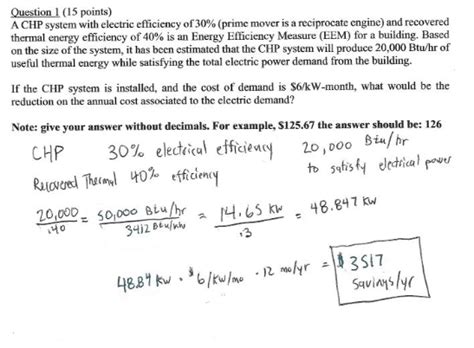 Question 1 (15 points)
A CHP system with electric efficiency of 30% (prime mover is a reciprocate engine) and recovered
thermal energy efficiency of 40% is an Energy Efficiency Measure (EEM) for a building. Based
on the size of the system, it has been estimated that the CHP system will produce 20,000 Btu/hr of
useful thermal energy while satisfying the total electric power demand from the building.
If the CHP system is installed, and the cost of demand is $6/kW-month, what would be the
reduction on the annual cost associated to the electric demand?
Note: give your answer without decimals. For example, $125.67 the answer should be: 126
CHP 30% electrical efficiency 20,000 Btu/hr
Recovered Thermal 40% efficiency to satisfy electrical power
20,000 / .40 = 50,000 Btu/hr / 3412 Btu/whr = 14.65 kW / .3 = 48.847 kW
48.84 kW · $6/kW/mo · 12 mo/yr = $3517
Savings/yr